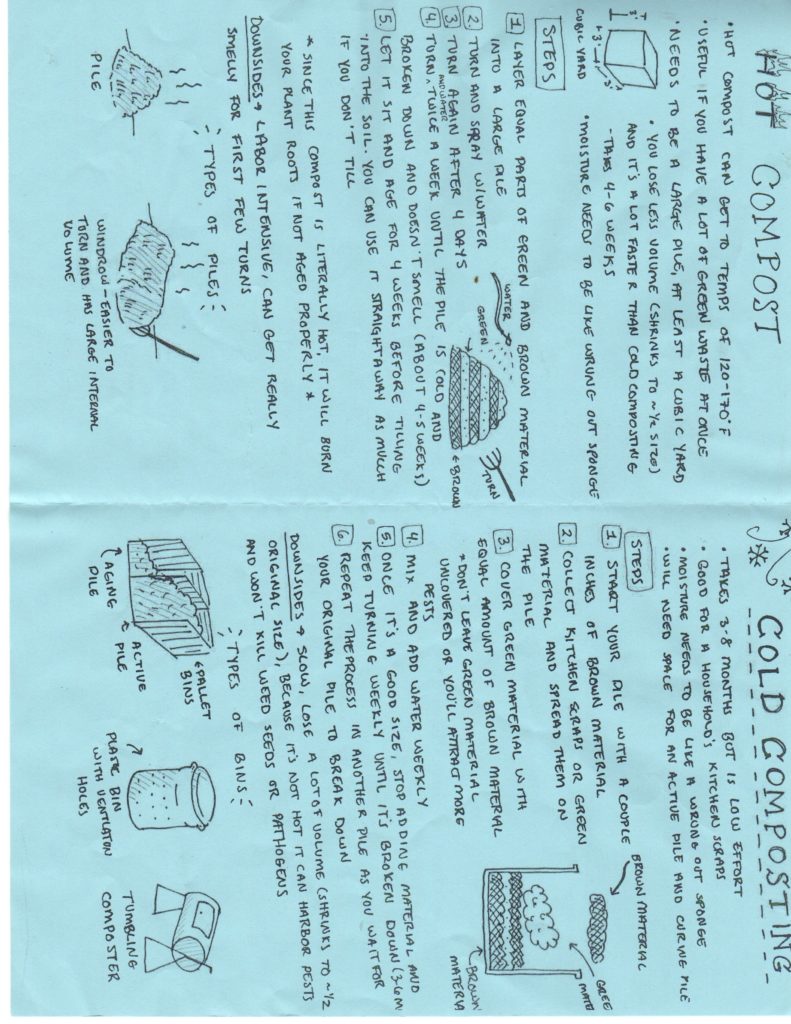 HOT COMPOST
• HOT COMPOST CAN GET TO TEMPS OF 120-170°F
• USEFUL IF YOU HAVE A LOT OF GREEN WASTE AT ONCE
• NEEDS TO BE A LARGE PILE, AT LEAST A CUBIC YARD
3'
3'
3'
CUBIC YARD
• YOU LOSE LESS VOLUME (SHRINKS TO ~1/2 SIZE)
AND IT'S A LOT FASTER THAN COLD COMPOSTING
- TAKES 4-6 WEEKS
• MOISTURE NEEDS TO BE LIKE WRUNG OUT SPONGE
STEPS
1. LAYER EQUAL PARTS OF GREEN AND BROWN MATERIAL
INTO A LARGE PILE
2. TURN AND SPRAY W/WATER
3. TURN AGAIN AFTER 4 DAYS
4. TURN AND WATER TWICE A WEEK UNTIL THE PILE IS COLD AND
BROKEN DOWN AND DOESN'T SMELL (ABOUT 4-5 WEEKS)
5. LET IT SIT AND AGE FOR 4 WEEKS BEFORE TILLING
INTO THE SOIL. YOU CAN USE IT STRAIGHT AWAY AS MULCH
IF YOU DON'T TILL
WATER
GREEN
TURN
BROWN
* SINCE THIS COMPOST IS LITERALLY HOT, IT WILL BURN
YOUR PLANT ROOTS IF NOT AGED PROPERLY *
DOWNSIDES → LABOR INTENSIVE, CAN GET REALLY
SMELLY FOR FIRST FEW TURNS
TYPES OF PILES
PILE
WINDROW - EASIER TO
TURN AND HAS LARGE INTERNAL
VOLUME
COLD COMPOSTING
• TAKES 3-8 MONTHS BUT IS LOW EFFORT
• GOOD FOR A HOUSEHOLD'S KITCHEN SCRAPS
• MOISTURE NEEDS TO BE LIKE A WRUNG OUT SPONGE
• WILL NEED SPACE FOR AN ACTIVE PILE AND CURING PILE
STEPS
1. START YOUR PILE WITH A COUPLE
INCHES OF BROWN MATERIAL
2. COLLECT KITCHEN SCRAPS OR GREEN
MATERIAL AND SPREAD THEM ON
THE PILE
3. COVER GREEN MATERIAL WITH
EQUAL AMOUNT OF BROWN MATERIAL
*DON'T LEAVE GREEN MATERIAL
UNCOVERED OR YOU'LL ATTRACT MORE
PESTS
4. MIX AND ADD WATER WEEKLY
5. ONCE IT'S A GOOD SIZE, STOP ADDING MATERIAL AND
KEEP TURNING WEEKLY UNTIL IT'S BROKEN DOWN (3-6M
6. REPEAT THE PROCESS IN ANOTHER PILE AS YOU WAIT FOR
YOUR ORIGINAL PILE TO BREAK DOWN
BROWN MATERIAL
GREE
MATE
BROWN
MATERIA
DOWNSIDES → SLOW, LOSE A LOT OF VOLUME (SHRINKS TO ~1/2
ORIGINAL SIZE), BECAUSE IT'S NOT HOT IT CAN HARBOR PESTS
AND WON'T KILL WEED SEEDS OR PATHOGENS
TYPES OF BINS
PALLET
BINS
ACTIVE
PILE
AGING
PILE
PLASTIC BIN
WITH VENTILATION
HOLES
TUMBLING
COMPOSTER